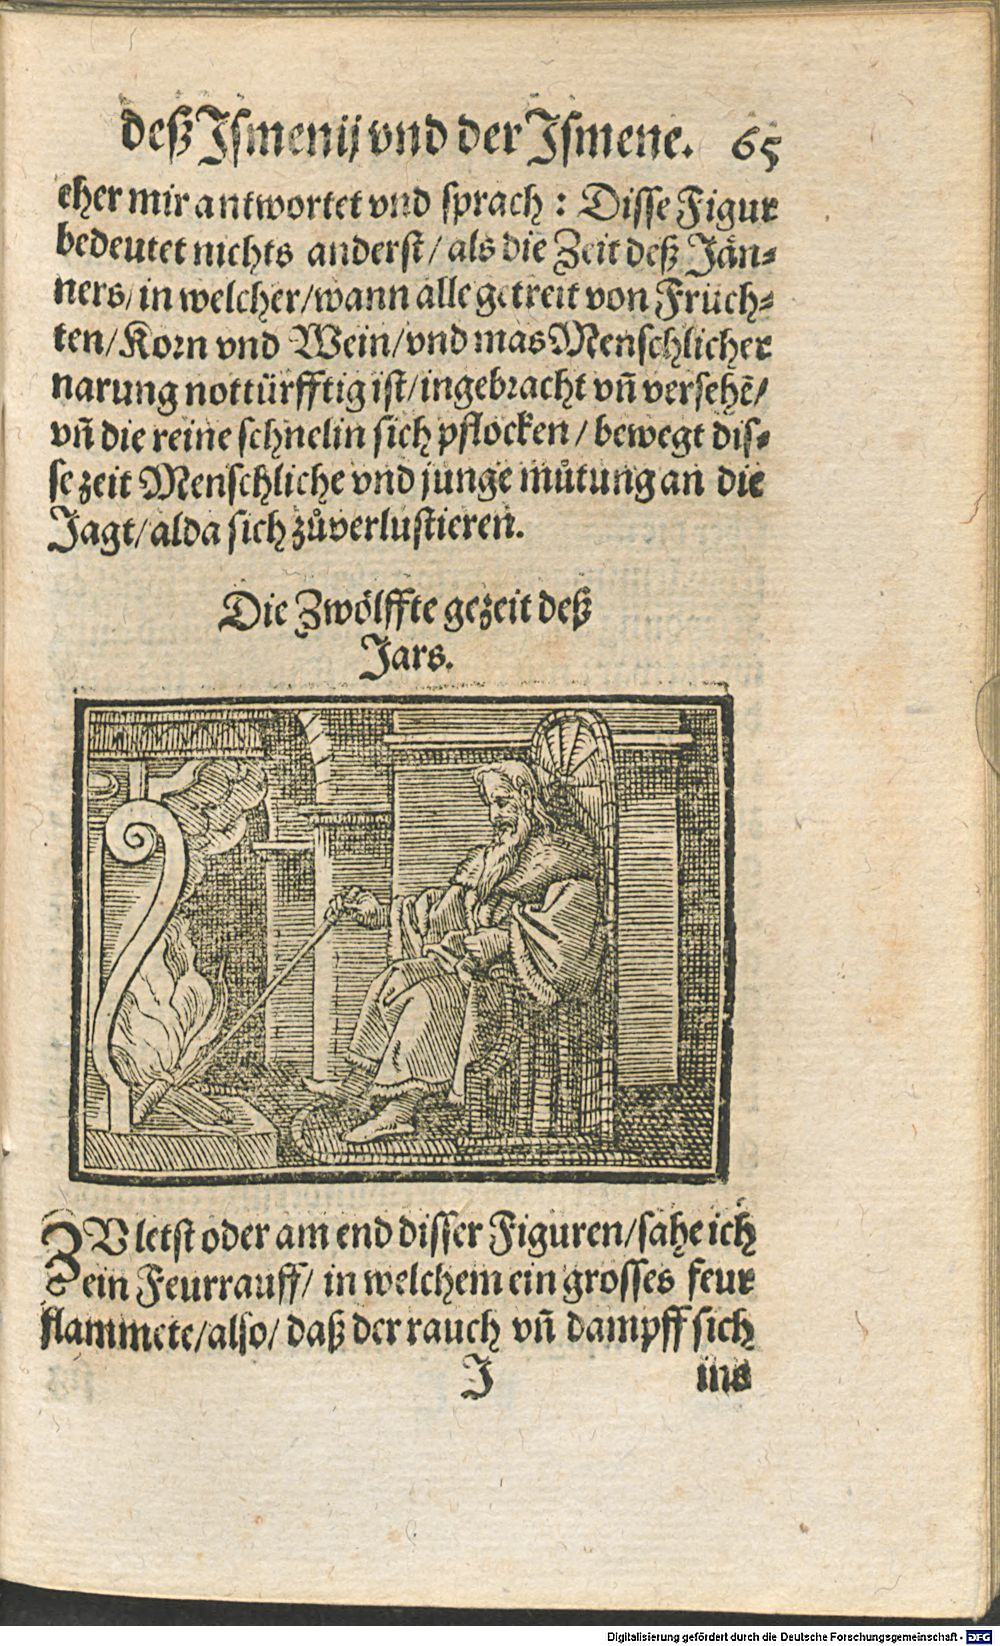 deß Ismenij vnd der Ismene. 65
cher mir antwortet vnd sprach : Disse Figur
bedeutet nichts anderst / als die Zeit deß Jän⸗
ners / in welcher / wann alle getreit von Früch⸗
ten / Korn vnd Wein / vnd mas Menschlicher
narung nottürfftig ist / ingebracht vñ versehẽ /
vñ die reine schnelin sich pflocken / bewegt dis⸗
se zeit Menschliche vnd junge můtung an die
Jagt / alda sich zůverlustieren.
Die Zwölffte gezeit deß
Jars.
ZV letst oder am end disser Figuren / sahe ich
ein Feurrauff / in welchem ein grosses feur
flammete / also / daß der rauch vñ dampff sich
J ins
Digitalisierung gefördert durch die Deutsche Forschungsgemeinschaft - DFG